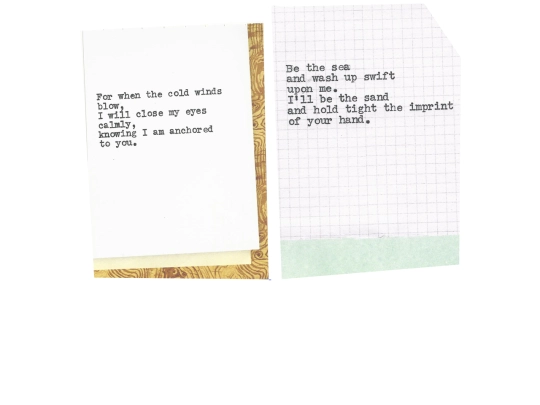 For when the cold winds
blow,
I will close my eyes
calmly,
knowing I am anchored
to you.
Be the sea
and wash up swift
upon me.
I'll be the sand
and hold tight the imprint
of your hand.